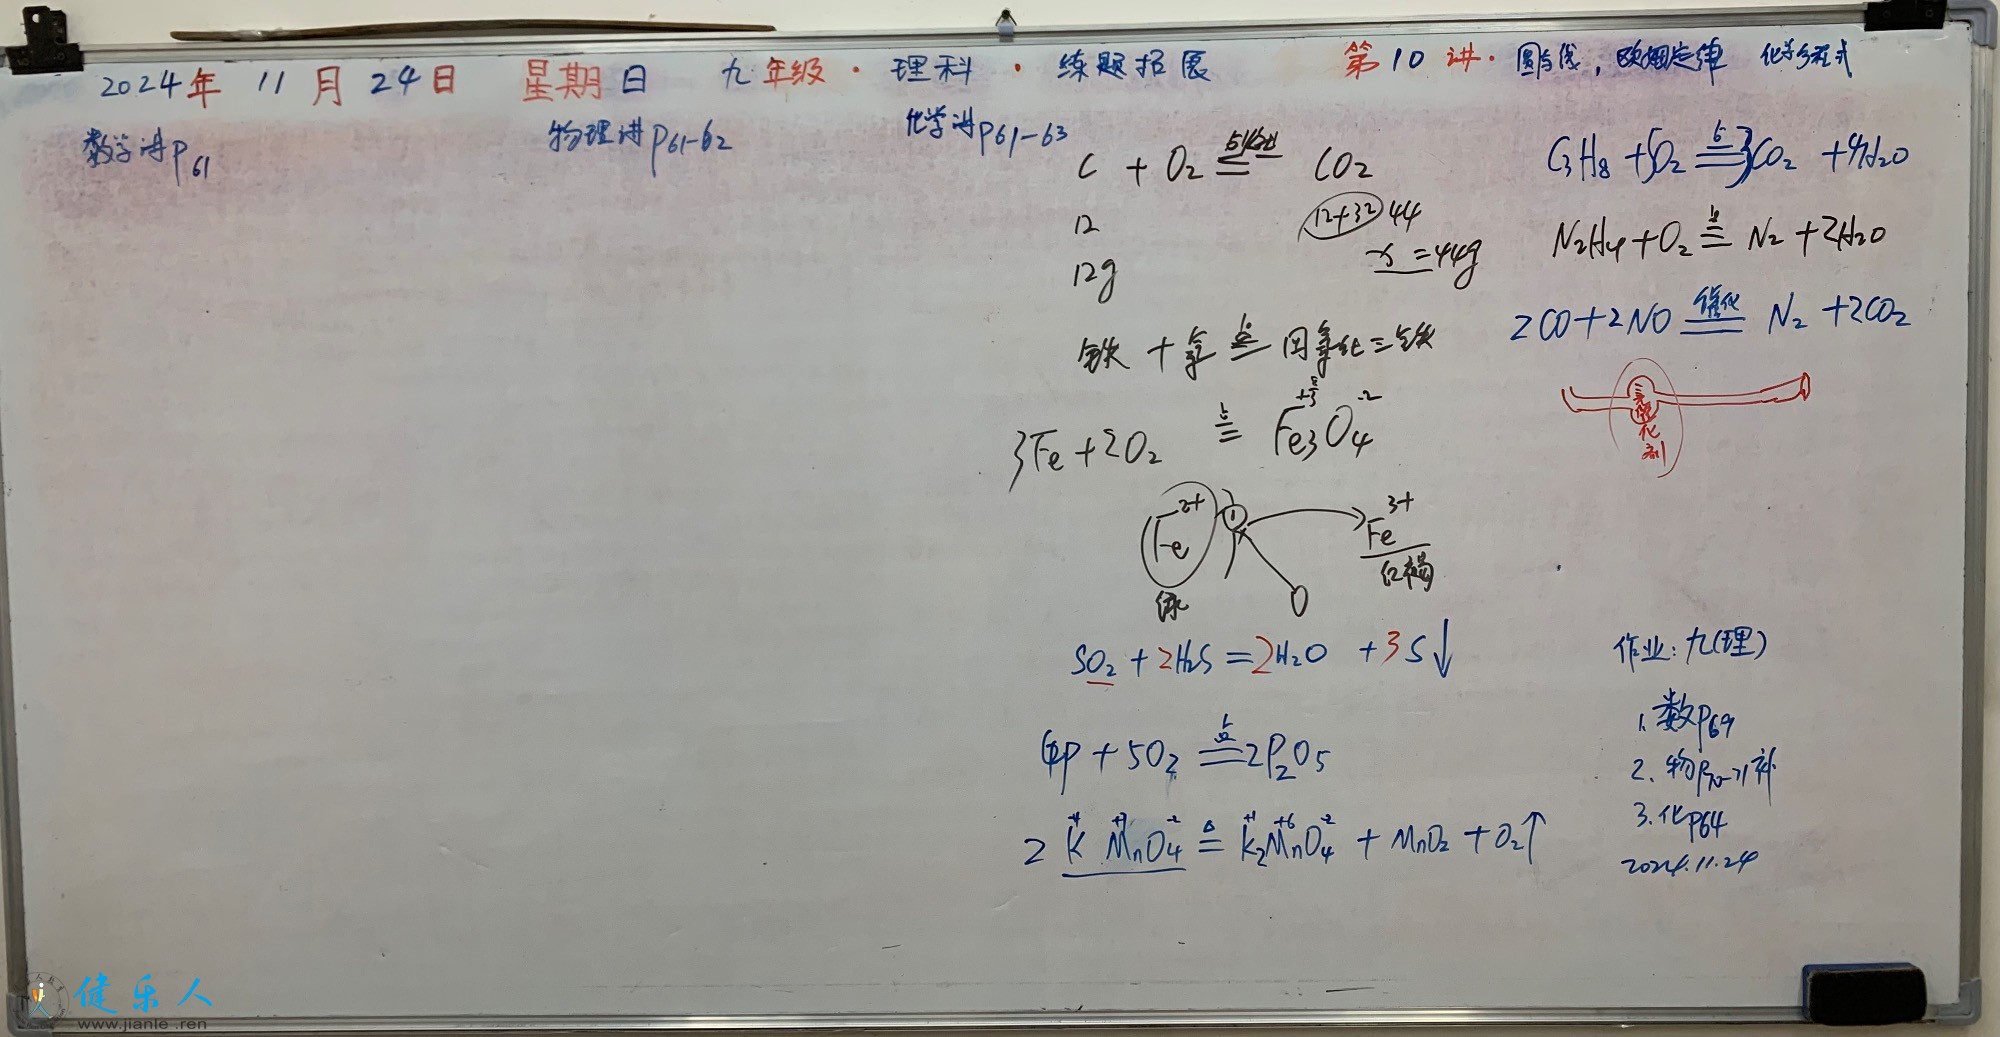 2024年 11月 24日 星期日 九年级·理科·练题拓展 第10讲·圆与线，欧姆定律 化学方程式
数学讲P61
物理讲P61-62
化学讲P61-63
C + O₂ ═ CO₂
12 12+32 44
12g x=44g
铁 + 氧 ═ 四氧化三铁
3Fe+2O₂ ═ Fe₃O₄
+8/3 -2
Fe²⁺ Fe³⁺
绿 红褐
SO₂ + 2H₂S = 2H₂O + 3S↓
4P + 5O₂ ═ 2P₂O₅
+1 +7 -2 +1 +6 -2
2KMnO₄ ≜ K₂MnO₄ + MnO₂ + O₂↑
C₃H₈ + 5O₂ ═ 3CO₂ + 4H₂O
N₂H₄ + O₂ ═ N₂ + 2H₂O
催化
2CO+2NO ═ N₂ +2CO₂
三元催化剂
作业：九(理)
1. 数P69
2. 物P70-71补
3. 化P64
2024.11.24
健乐人
www.jianle.ren